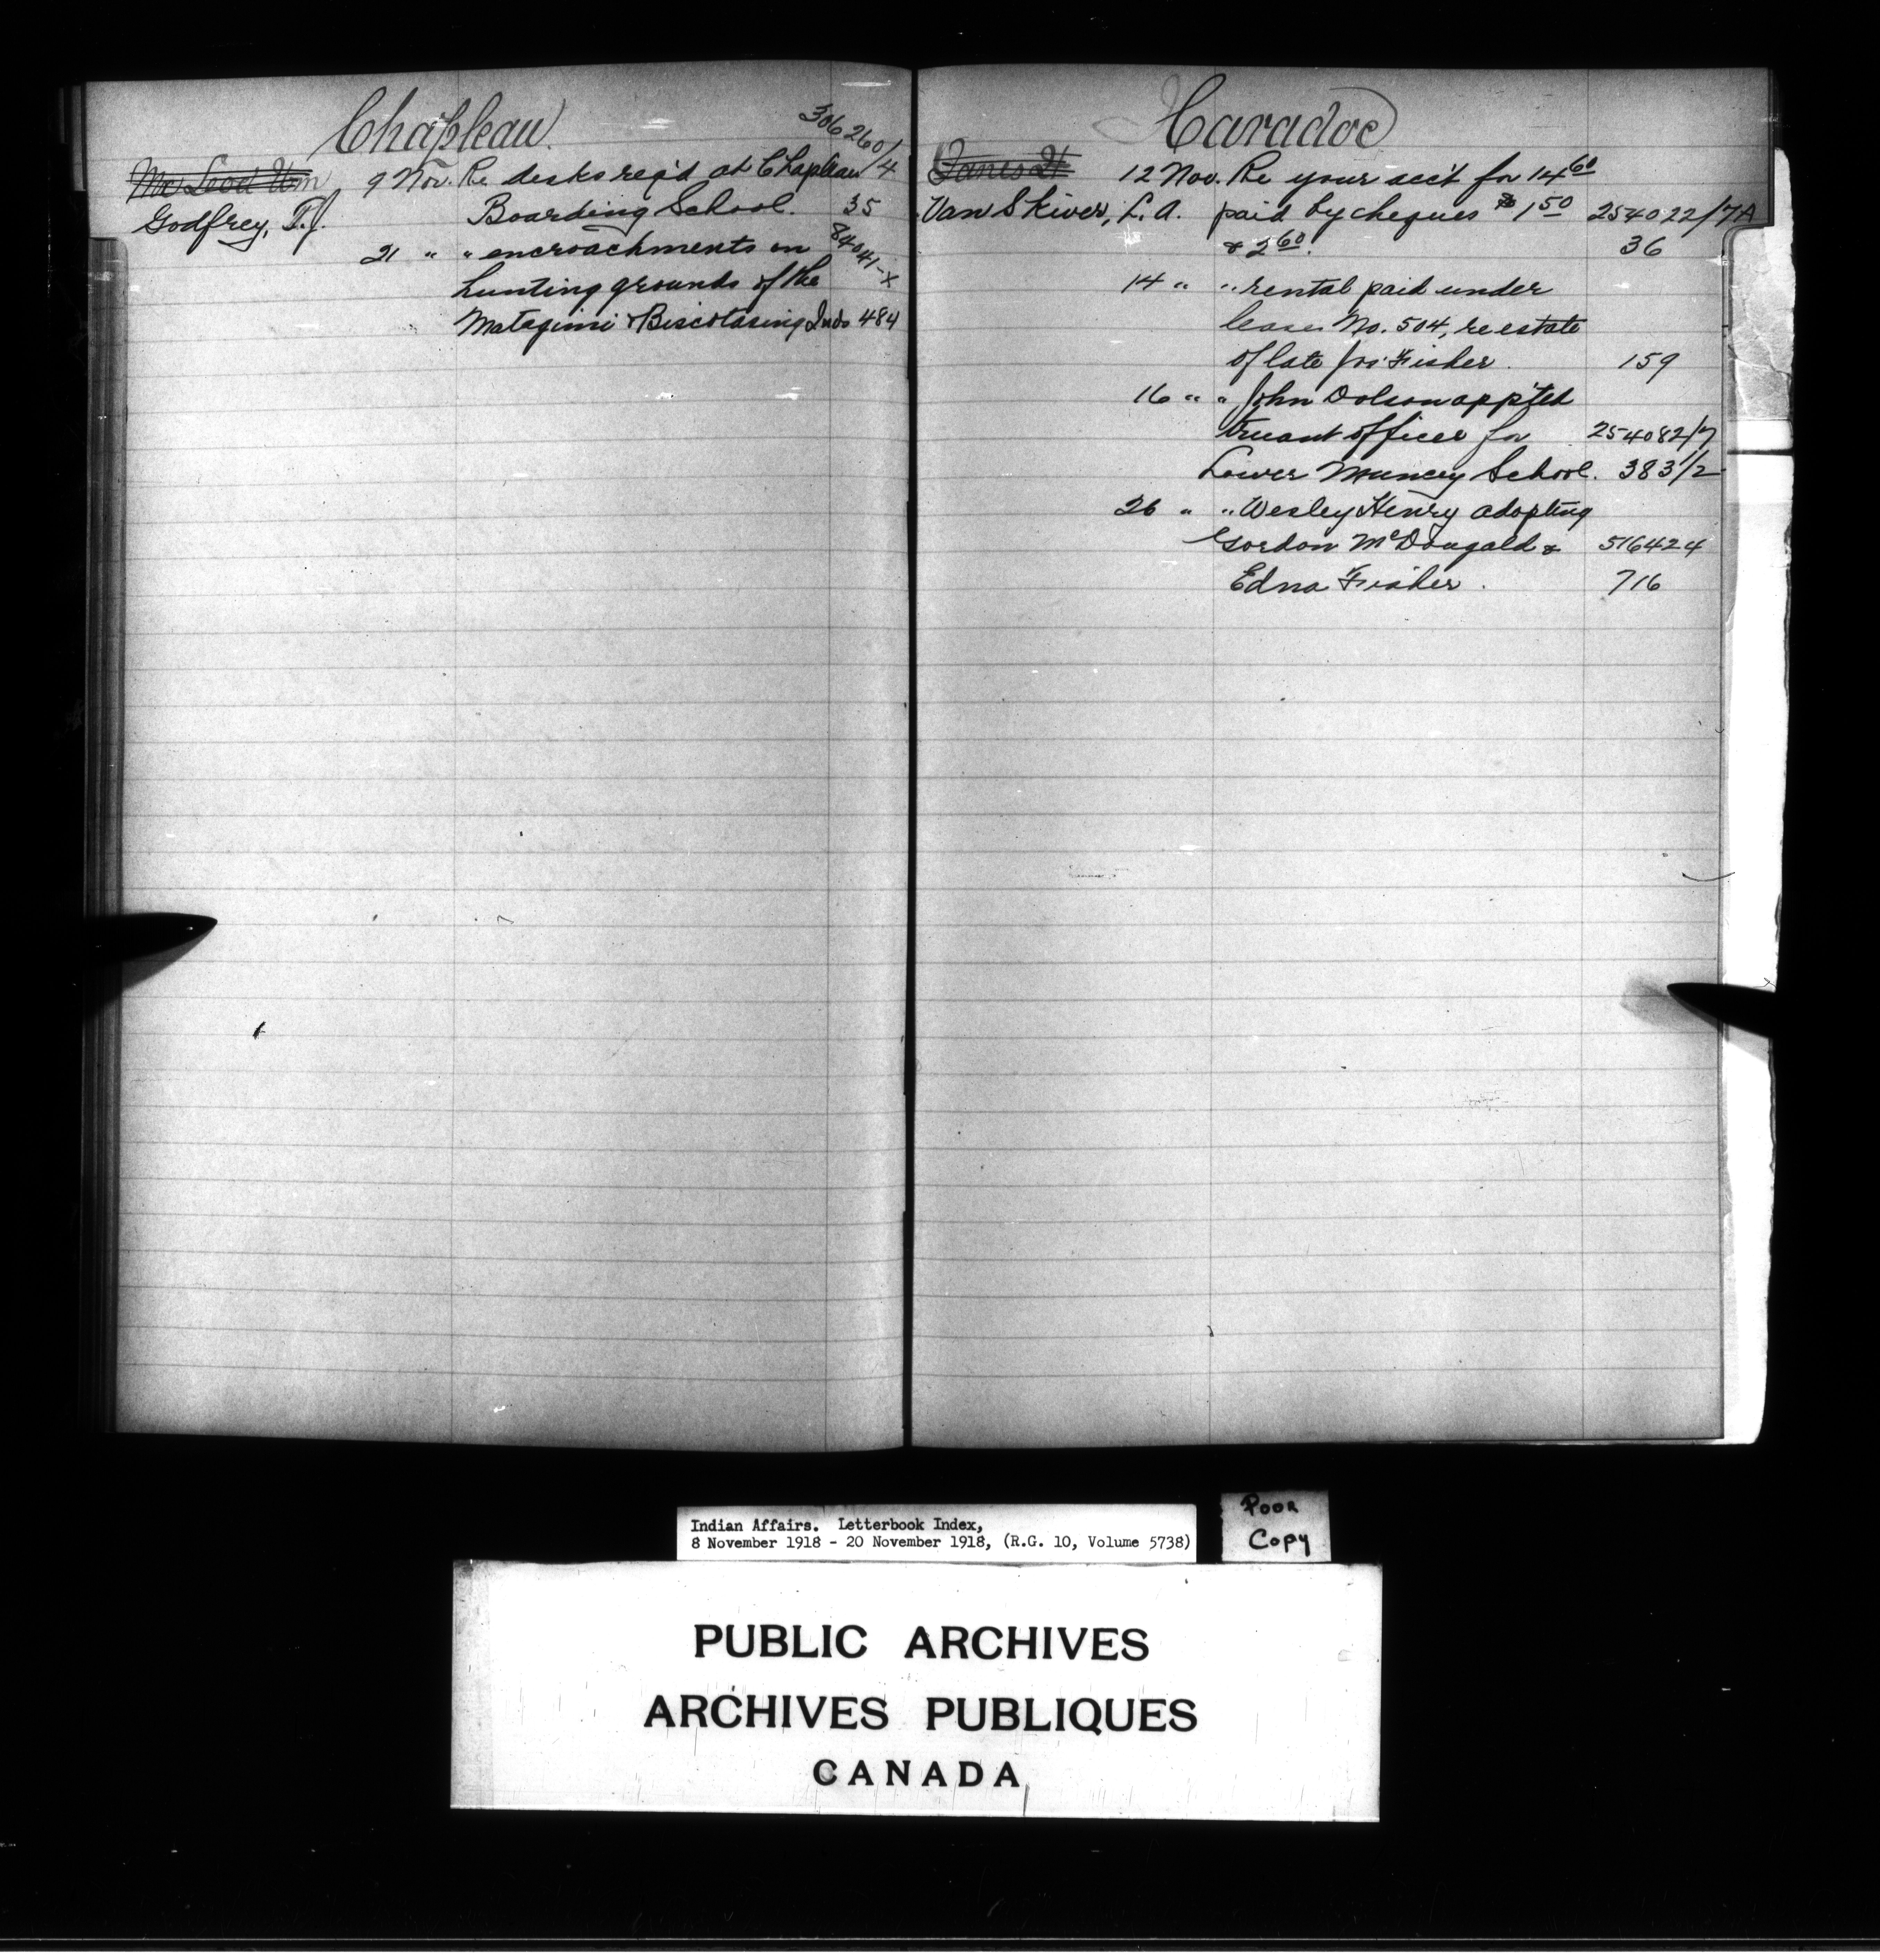 Chapleau.
306260/4
Mc Leod Wm 9 Nov. Re desks req'd at Chapleau
Godfrey, T.J. Boarding School. 35
21 " " encroachments on 84041-X
hunting grounds of the
Matagimi & Biscotasing Inds 484
Caradoc
Janes H 12 Nov. Re your acc't for 14 60
Van Skiver, L. A. paid by cheques $1 50 254022/7A
& 2 60. 36
14 " " rental paid under
lease No. 504, re estate
of late Jos. Fisher. 159
16 " " John Dolson app'ted
truant officer for 254082/7
Lower Muncey School. 383/2
26 " " Wesley Henry adopting
Gordon McDougald & 516424
Edna Fisher. 716
Indian Affairs. Letterbook Index,
8 November 1918 - 20 November 1918, (R.G. 10, Volume 5738)
Poor
Copy
PUBLIC ARCHIVES
ARCHIVES PUBLIQUES
CANADA